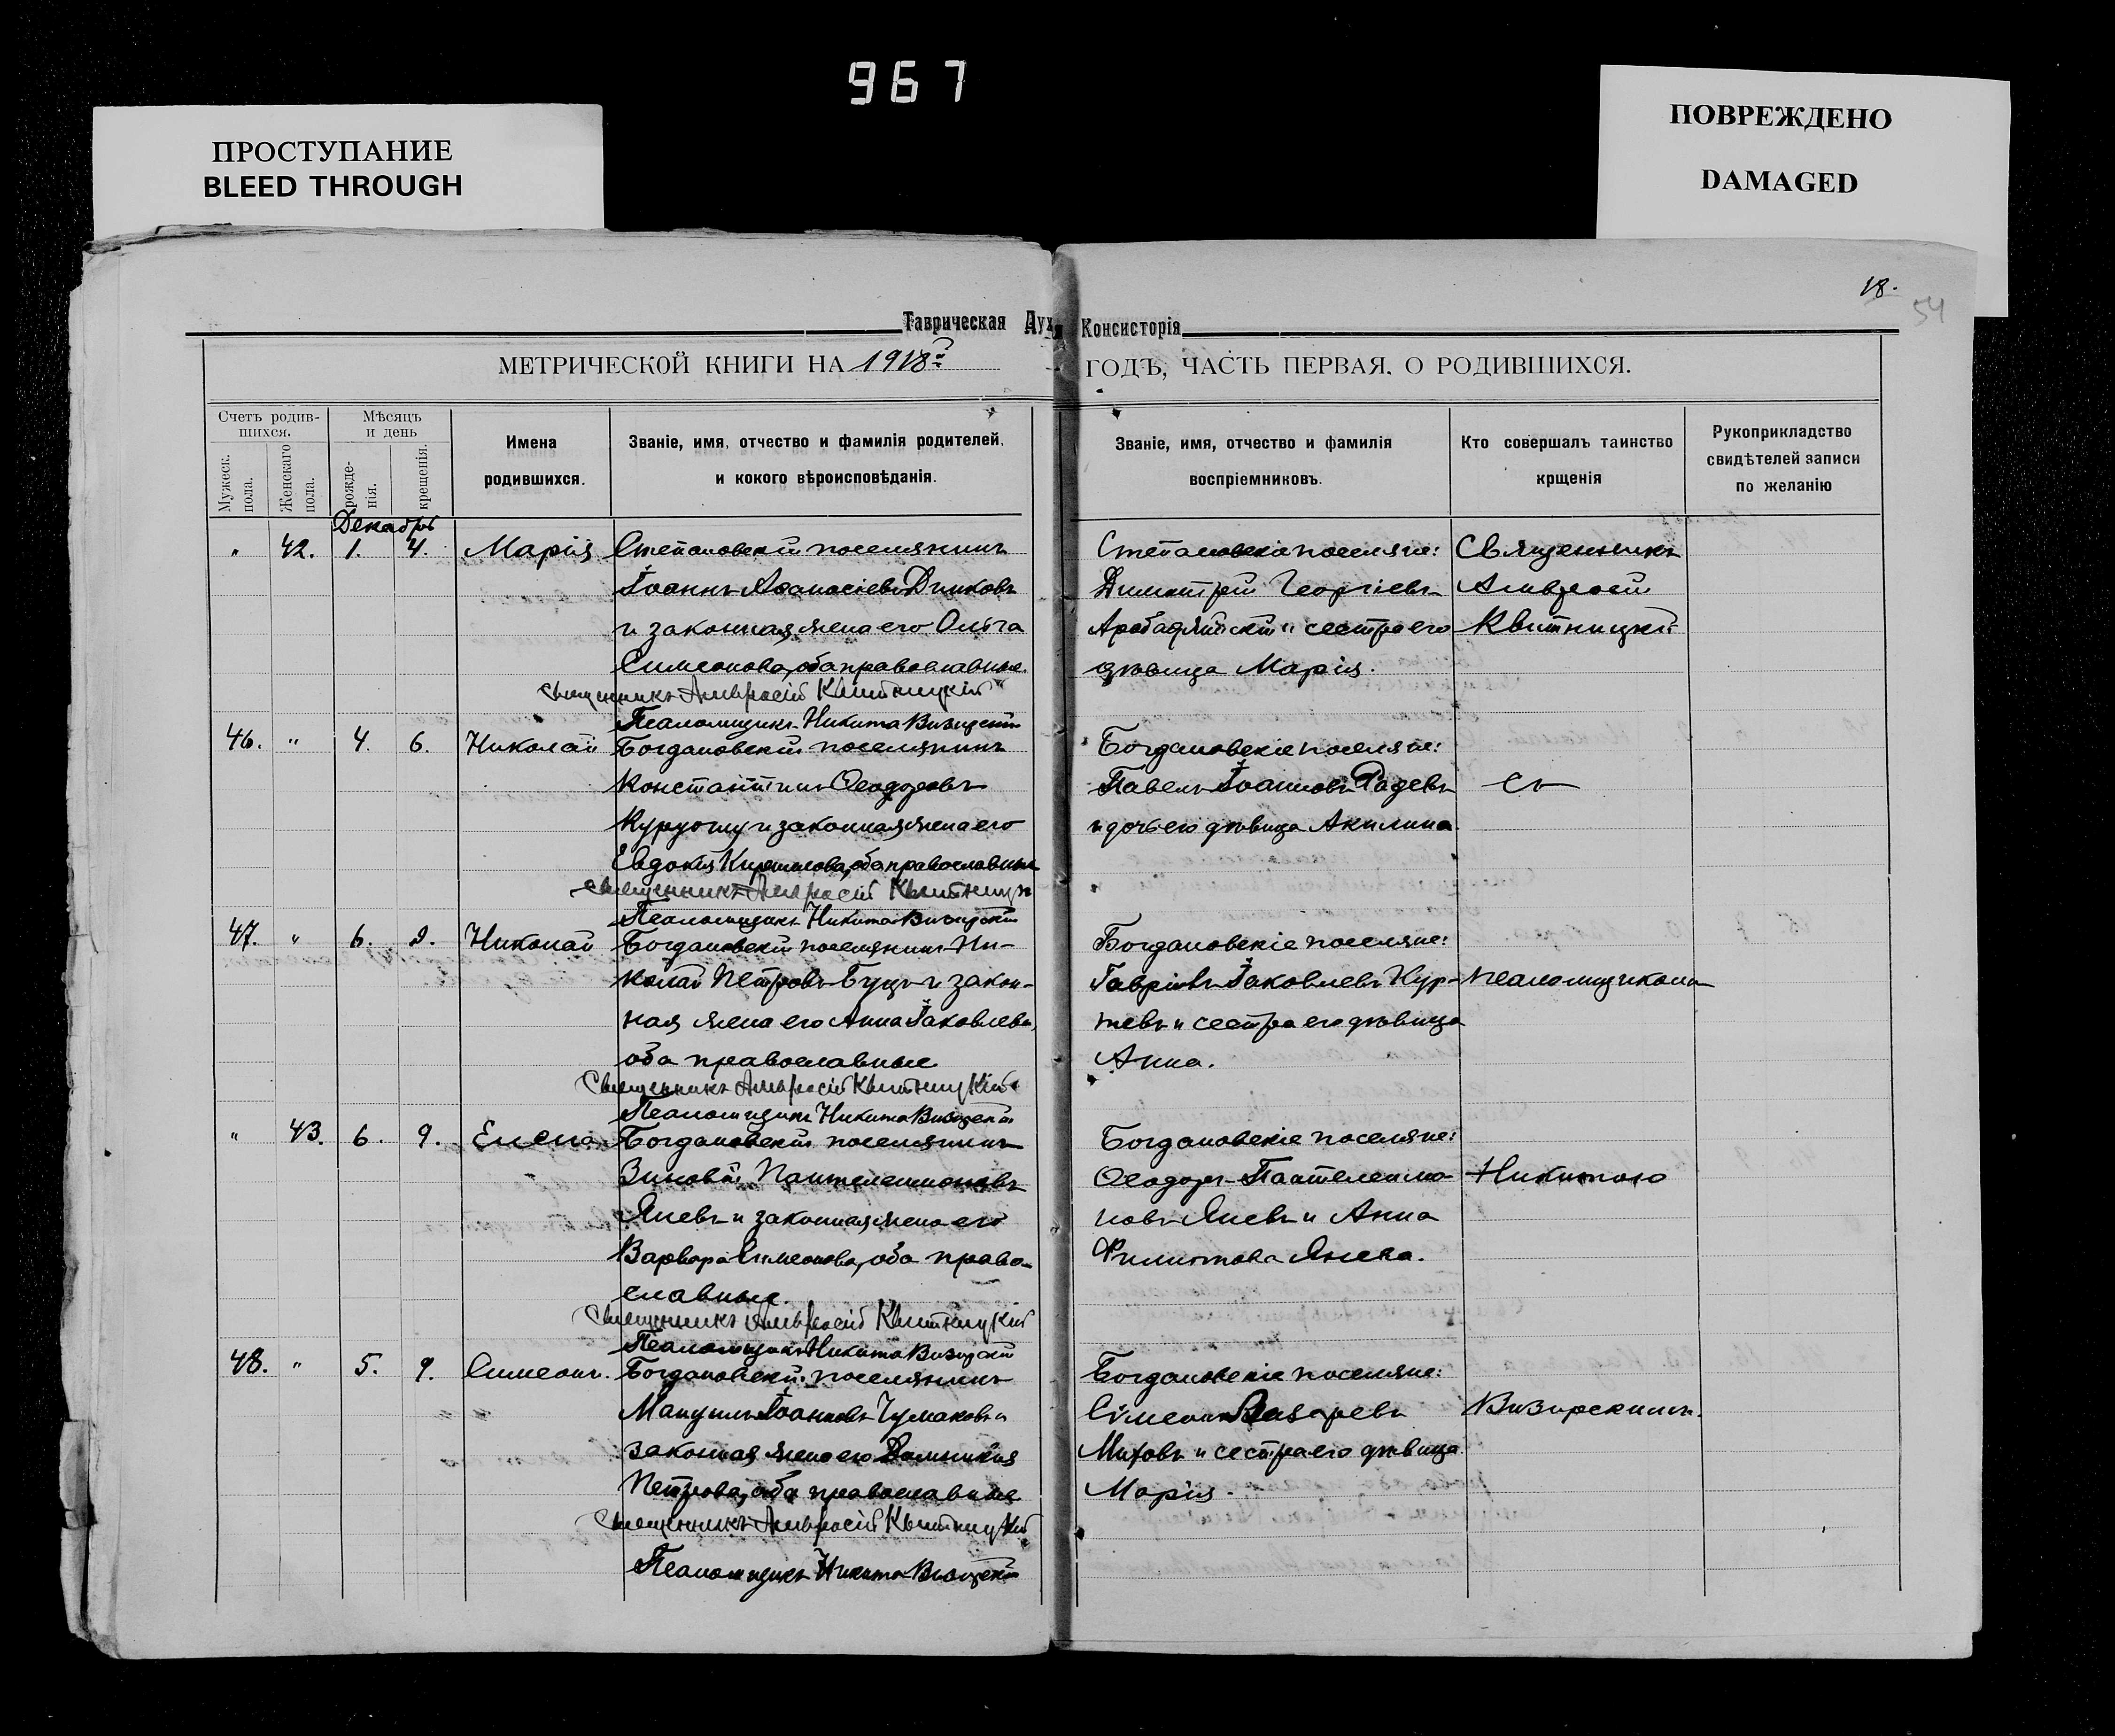 967
ПРОСТУПАНИЕ
BLEED THROUGH
ПОВРЕЖДЕНО
DAMAGED
18.
54
Таврическая Дух Консисторія
МЕТРИЧЕСКОЙ КНИГИ НА 1918 г ГОДЪ, ЧАСТЬ ПЕРВАЯ, О РОДИВШИХСЯ.
Счетъ родив-
шихся.
Мужеск.
пола.
Женскаго
пола.
Мѣсяцъ
и день
рожде-
нія.
крещенія.
Имена
родившихся.
Званіе, имя, отчество и фамилія родителей,
и кокого вѣроисповѣданія.
Званіе, имя, отчество и фамилія
воспріемниковъ.
Кто совершалъ таинство
крщенія
Рукоприкладство
свидѣтелей записи
по желанію
Декабрь
" 42. 1. 4. Марія
Степановскій поселянинъ
Іоаннъ Аѳанасіевъ Димковъ
и законная жена его Ольга
Симеонова, оба православные.
Священникъ Амвросій Квитницкій
Псаломщикъ Никита Визирскій
Степановскіе поселяне:
Димитрій Георгіевъ
Арабаджійскій и сестра его
дѣвица Марія.
Священникъ
Амвросій
Квитницкій
46. " 4. 6. Николай
Богдановскій поселянинъ
Константинъ Ѳеодоровъ
Куруоглу и законная жена его
Евдокія Кириллова, оба православные
Священникъ Амвросій Квитницк
Псаломщикъ Никита Визирскій
Богдановскіе поселяне:
Павелъ Іоанновъ Радевъ
и дочь его дѣвица Акилина.
съ
47. " 6. 9. Николай
Богдановскій поселянинъ Ни-
колай Петровъ Буцъ и закон-
ная жена его Анна Іаковлева,
оба православные
Священникъ Амвросій Квитницкій
Псаломщикъ Никита Визирскій
Богдановскіе поселяне:
Гавріилъ Іаковлевъ Кур-
тевъ и сестра его дѣвица
Анна.
псаломщикомъ
" 43. 6. 9. Елена
Богдановскій поселянинъ
Зиновій Пантелеимоновъ
Яневъ и законная жена его
Варвара Симеонова, оба право-
славные.
Священникъ Амвросій Квитницкій
Псаломщикъ Никита Визирскій
Богдановскіе поселяне:
Ѳеодоръ Пантелеимо-
новъ Яневъ и Анна
Филиппова Янева.
Никитою
48. " 5. 9. Симеонъ.
Богдановскій поселянинъ
Мануилъ Іоанновъ Чумаковъ и
законная жена его Домникія
Петрова, оба православные
Священникъ Амвросій Квитницкій
Псаломщикъ Никита Визирскій
Богдановскіе поселяне:
Симеонъ Лазаревъ
Митовъ и сестра его дѣвица
Марія.
Визирскимъ.